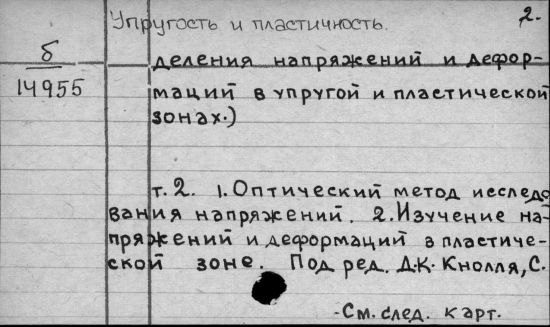 Упругость и пластичность.
2.
б
14955
деления напряжений и дефор-
маций в упругой и пластической
зонах.)
т. 2. 1. Оптический метод исследо
вания напряжений. 2. Изучение на-
пряжений и деформаций в пластиче-
ской зоне. Под ред. Д.К. Кнолля, С.
- См. след. карт.